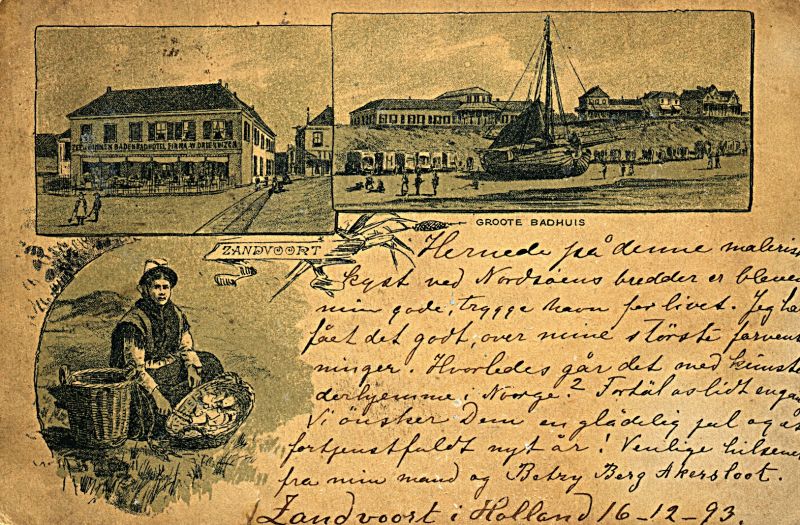 ZEE & BINNEN BADEN BADHOTEL FIRMA W. DRIEHUIZEN
GROOTE BADHUIS
ZANDVOORT
Hernede på denne maleris
kyst ved Nordsøens bredder er bleven
min gode, trygge havn for livet. Jeg ha
fået det godt, over mine störste forvent
ninger. Hvorledes går det med kunste
derhjemme i Norge? Fortäl os lidt engang
Vi önsker Dem en glädelig jul og et
fortjenstfuldt nyt år! Venlige hilsener
fra min mand og Betzy Berg Akersloot.
Zandvoort i Holland 16-12-93